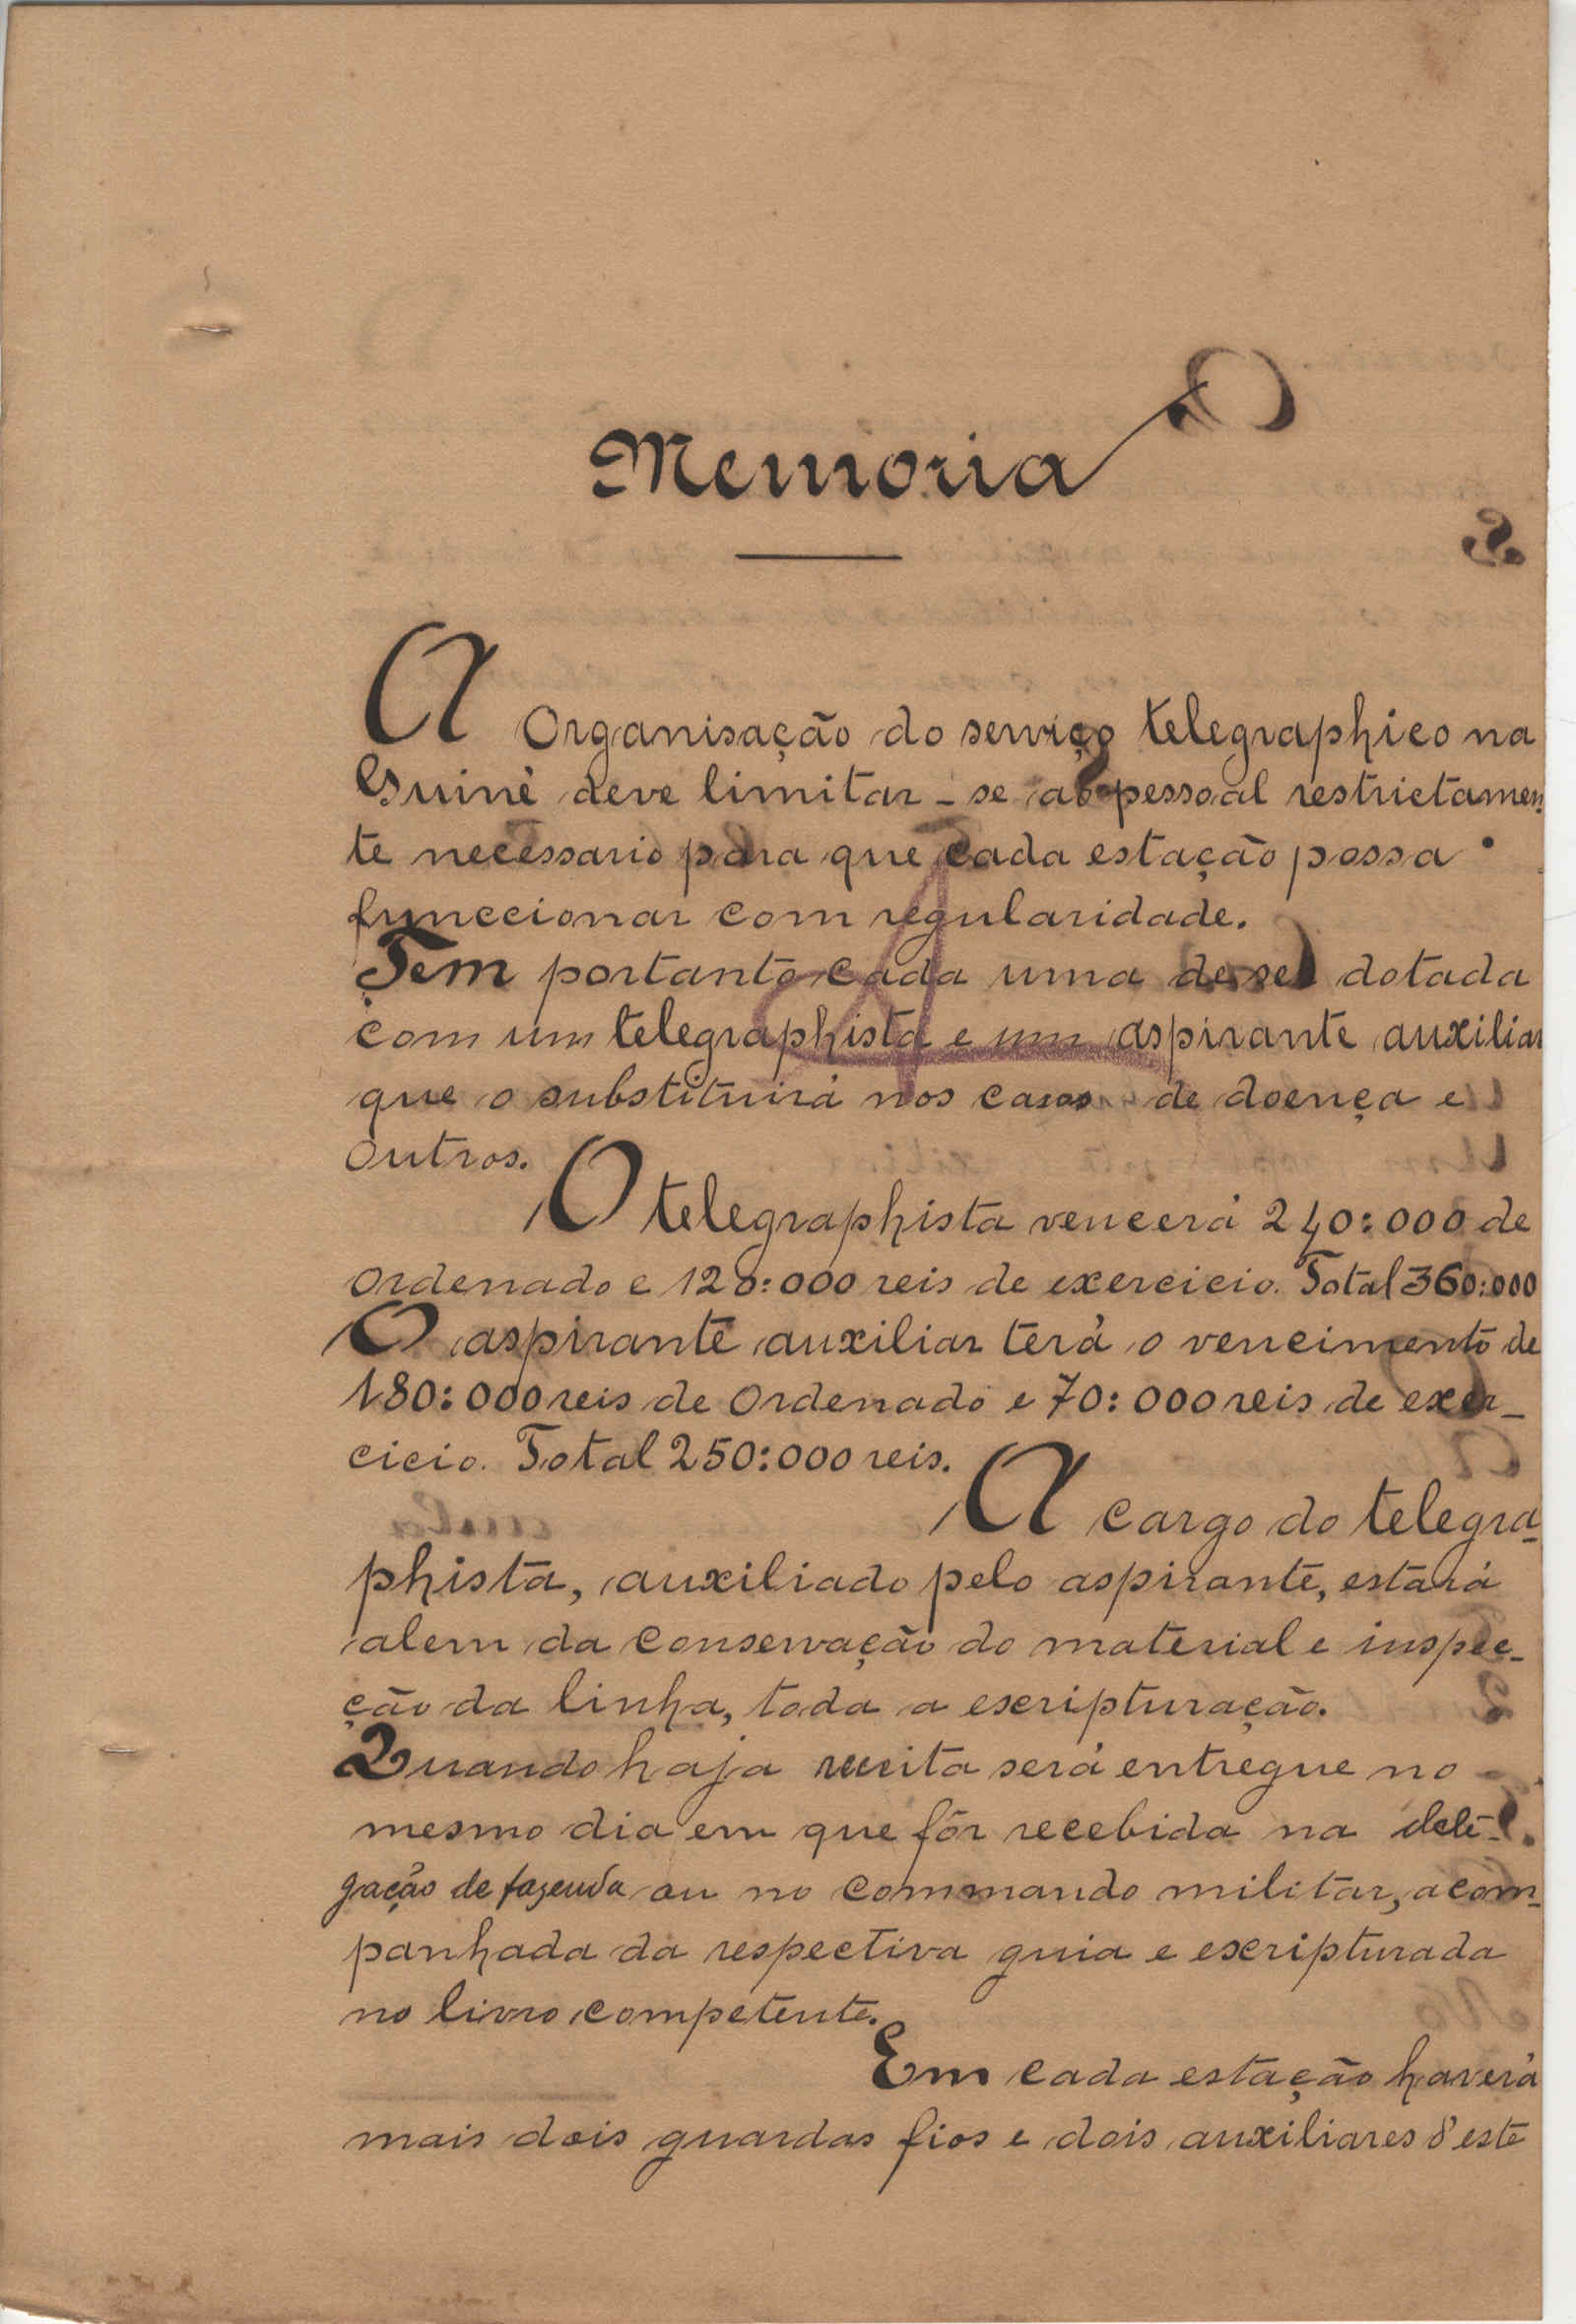 Memoria
A Organisação do serviço telegraphico na
Guiné deve limitar-se ao pessoal restrictamen
te necessario para que cada estação possa
funccionar com regularidade.
Tem portanto cada uma de ser dotada
com um telegraphista e um aspirante auxiliar
que o substituirá nos casos de doença e
outros.
O telegraphista vencerá 240:000 de
ordenado e 120:000 reis de exercicio. Total 360:000
O aspirante auxiliar terá o vencimento de
180:000 reis de ordenado e 70:000 reis de exer-
cicio. Total 250:000 reis.
A cargo do telegra-
phista, auxiliado pelo aspirante, estará
alem da conservação do material e inspec-
ção da linha, toda a escripturação.
Quando haja receita será entregue no
mesmo dia em que fôr recebida na dele-
gação de fazenda ou no commando militar, acom-
panhada da respectiva guia e escripturada
no livro competente.
Em cada estação haverá
mais dois guardas fios e dois auxiliares d'este